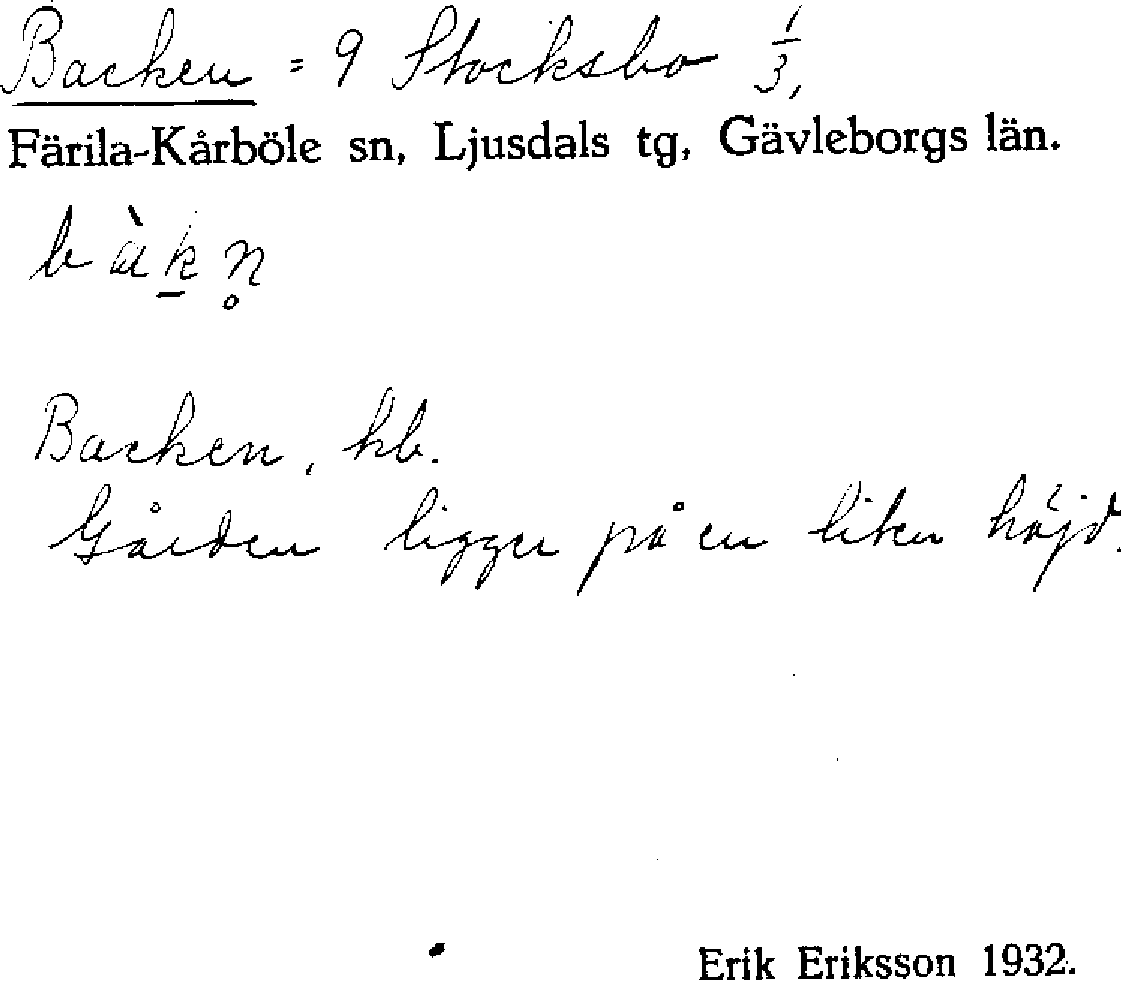 Backen = 9 Stocksbo 1/3,
Färila-Kårböle sn, Ljusdals tg, Gävleborgs län.
bàk̠n̥
Backen, hb.
Gården ligger på en liten höjd.
Erik Eriksson 1932.